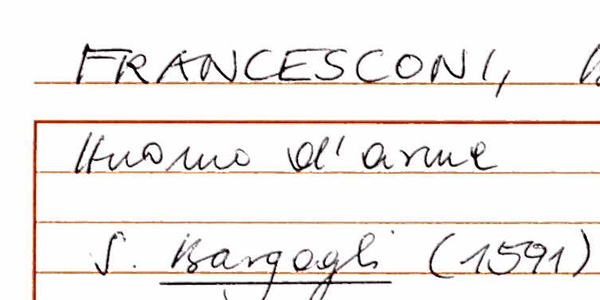 FRANCESCONI,
Huomo d'arme
S. Bargogli (1591)